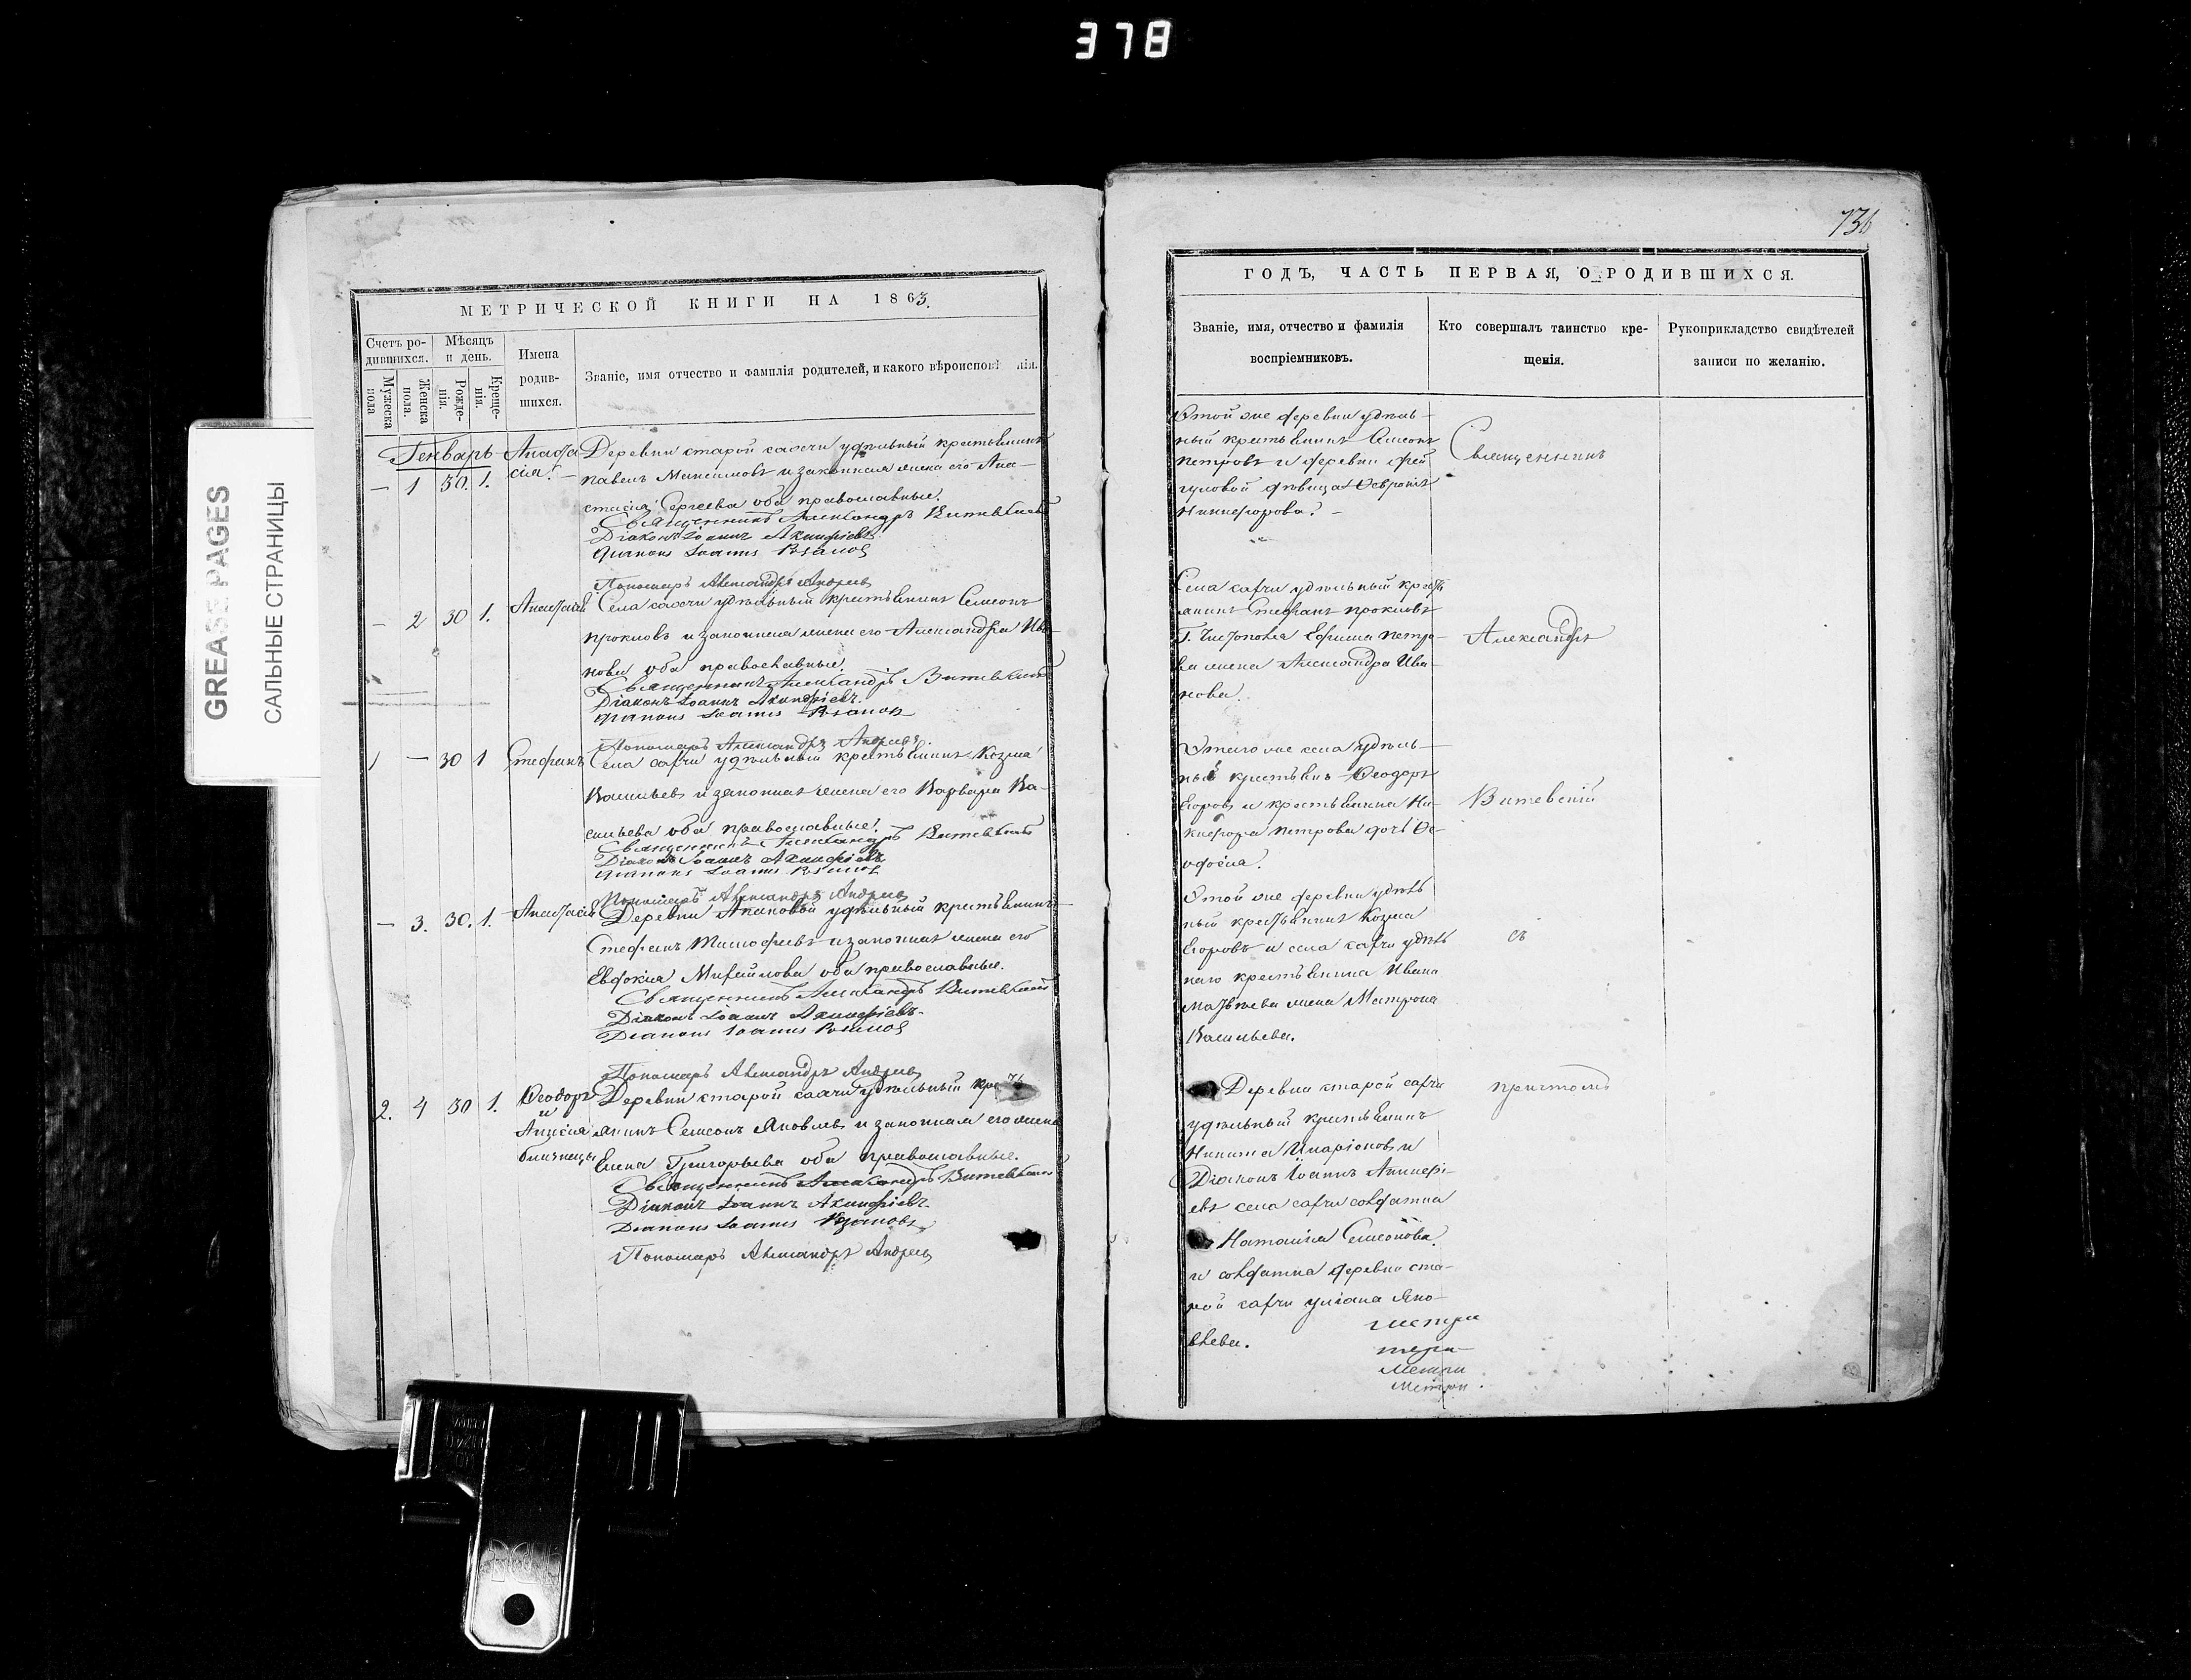 378
GREASE PAGES
САЛЬНЫЕ СТРАНИЦЫ
МЕТРИЧЕСКОЙ КНИГИ НА 1863.
Счетъ ро-
дившихся.
Мѣсяцъ
и день.
Имена
родив-
шихся.
Званіе, имя отчество и фамилія родителей, и какого вѣроисповѣ нія.
Мужеска
пола
Женска
пола.
Рожде-
нія.
Креще-
нія.
Генварь
Анаста
сія.
— 1 30. 1.
Деревни старой сахчи удѣльный крестьянинъ
павелъ Максимовъ и законная жена его Ана-
стасія Сергеева оба православные.
Священникъ Александръ Витевскій
Діаконъ Іоаннъ Акинфіевъ
Пономарь Александръ Андреевъ
— 2 30 1. Анастасія
Села сахчи удѣльный крестьянинъ Симеонъ
прокловъ и законная жена его Александра Ива-
нова оба православные.
Священникъ Александръ Витевскій
Діаконъ Іоаннъ Акинфіевъ.
Пономарь Александръ Андреевъ.
1 — 30 1 Стефанъ
Села сахчи удѣльный крестьянинъ Козма
Васильевъ и законная жена его Варвара Ва-
сильева оба православные.
Священникъ Александръ Витевскій
Діаконъ Іоаннъ Акинфіевъ
Пономарь Александръ Андреевъ
— 3. 30. 1. Анастасія
Деревни удѣльный крестьянинъ
Стефанъ Тимофеевъ и законная жена его
Евдокія Михайлова оба православные.
Священникъ Александръ Витевскій
Діаконъ Іоаннъ Акинфіевъ.
Пономарь Александръ Андреевъ
2. 4 30 1.
Ѳеодоръ
и
близнецы
Деревни старой сахчи удѣльный крест
янинъ Симеонъ Яковлевъ и законная его жена
Елена Григорьева оба православные.
Священникъ Александръ Витевскій
Діаконъ Іоаннъ Акинфіевъ.
Пономарь Александръ Андреевъ
136
ГОДЪ, ЧАСТЬ ПЕРВАЯ, О РОДИВШИХСЯ.
Званіе, имя, отчество и фамилія
воспріемниковъ.
Кто совершалъ таинство кре-
щенія.
Рукоприкладство свидѣтелей
записи по желанію.
Этой же деревни удѣль-
ный крестьянинъ Симеонъ
петровъ и деревни
дѣвица Ѳеврония
Никифорова. —
Села сахчи удѣльный крест
янинъ Стефанъ прокловъ
Г. Чистополя Ефима петро-
ва жена Александра Ива-
нова.
Этого же села удѣль-
ный крестьянъ Ѳеодоръ
Егоровъ и крестьянина Ни-
кифора петрова дочь Ѳе-
одосіа.
Этой же деревни удѣль
ный крестьянинъ Козма
Егоровъ и села сахчи удѣль
наго крестьянина Ивана
матвѣева жена Матрона
Васильева.
Деревни старой сахчи
удѣльный крестьянинъ
Никита Иларіоновъ и
Діаконъ Іоаннъ Акинфі-
евъ села сахчи солдатка
Наталія Симеонова
и солдатка деревни ста-
рой сахчи уліана Яко-
влева.
Священникъ
Александръ
Витевскій
съ
причтомъ
метри
Метри